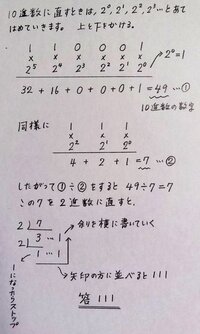 10進数に直すときは、2⁰, 2¹, 2², 2³…とあて
はめていきます。 上と下をかける。
1 1 0 0 0 1
× × × × × × 2⁰=1
2⁵ 2⁴ 2³ 2² 2¹ 2⁰
32 + 16 + 0 + 0 + 0 + 1 = 49 …①
10進数の数字
同様に 1 1 1
× × ×
2² 2¹ 2⁰
4 + 2 + 1 = 7 …②
したがって①÷②をすると 49÷7=7
この7を2進数に直すと、
2)7 余りを横に書いていく
2)3 … 1
1 … 1
1になったらストップ
矢印の方に並べると111
答 111